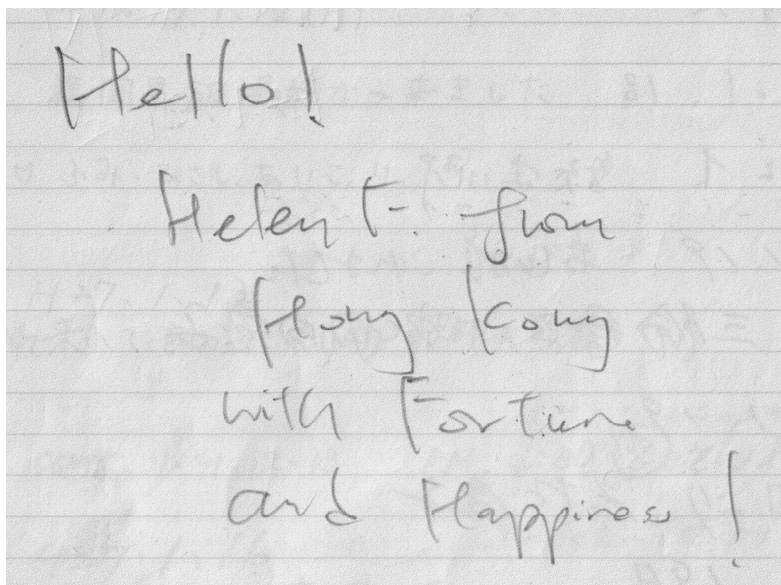 Hello!
Helen F. from
Hong Kong
with Fortune
and Happiness!